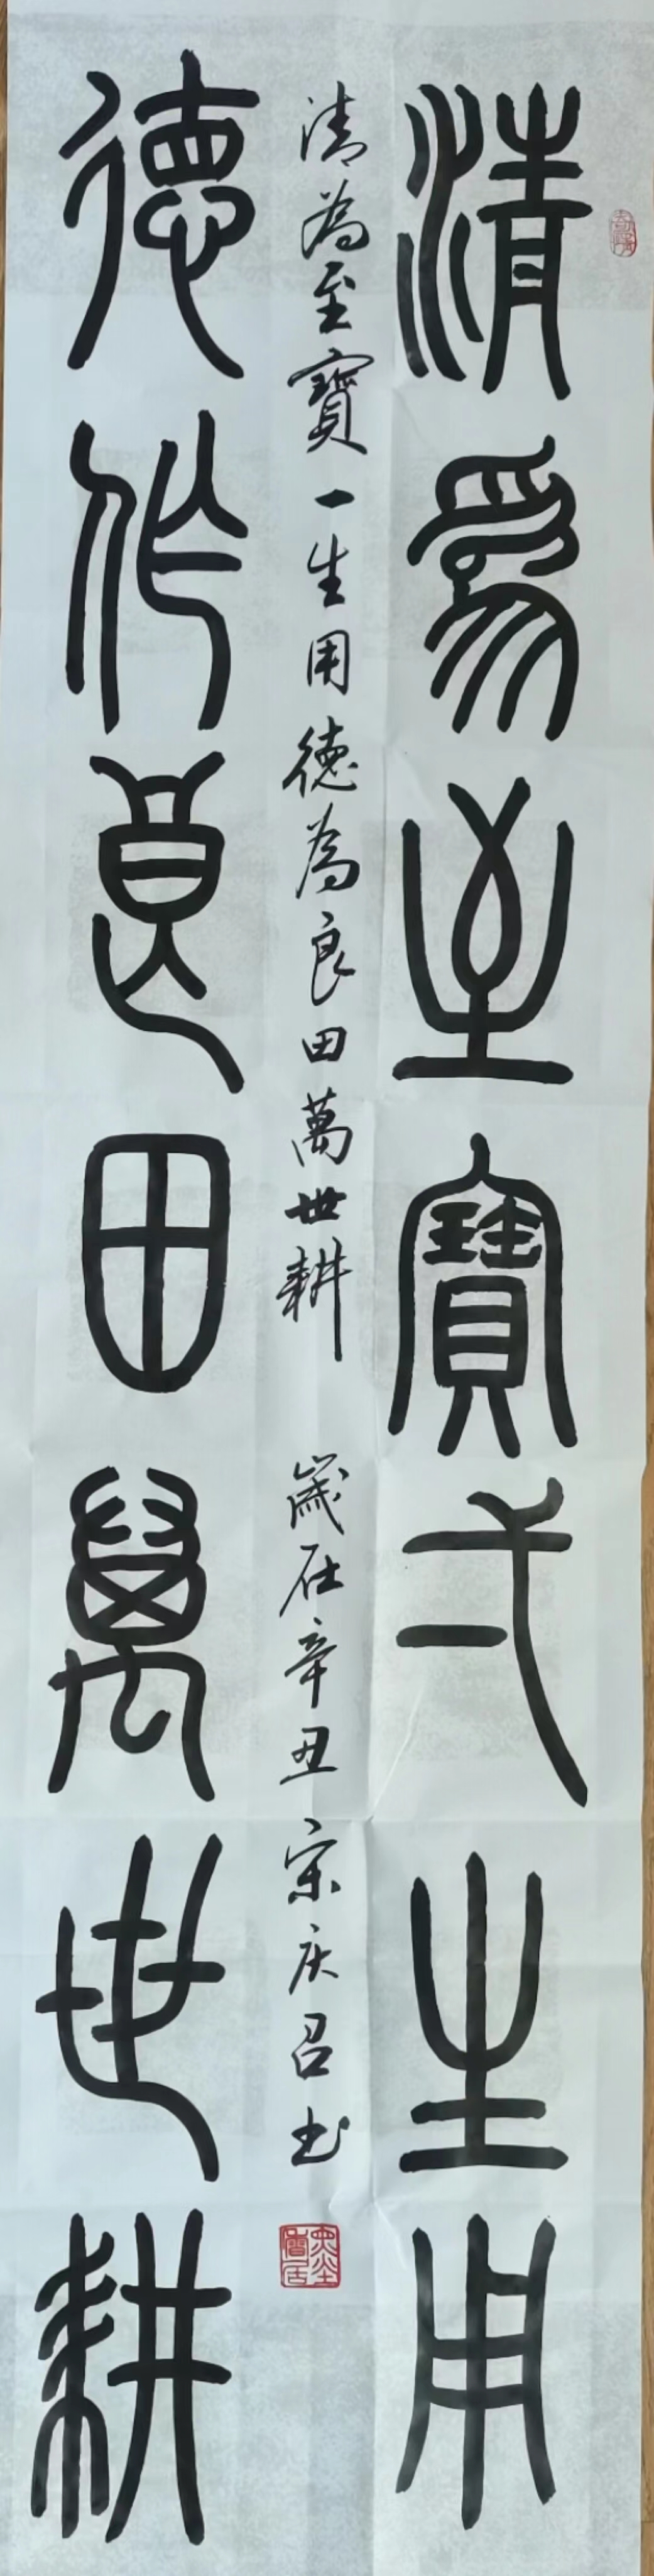 清為至寶弌生用
清為至寶一生用德為良田萬世耕 歲在辛丑 宋庆召书
德作良田萬世耕